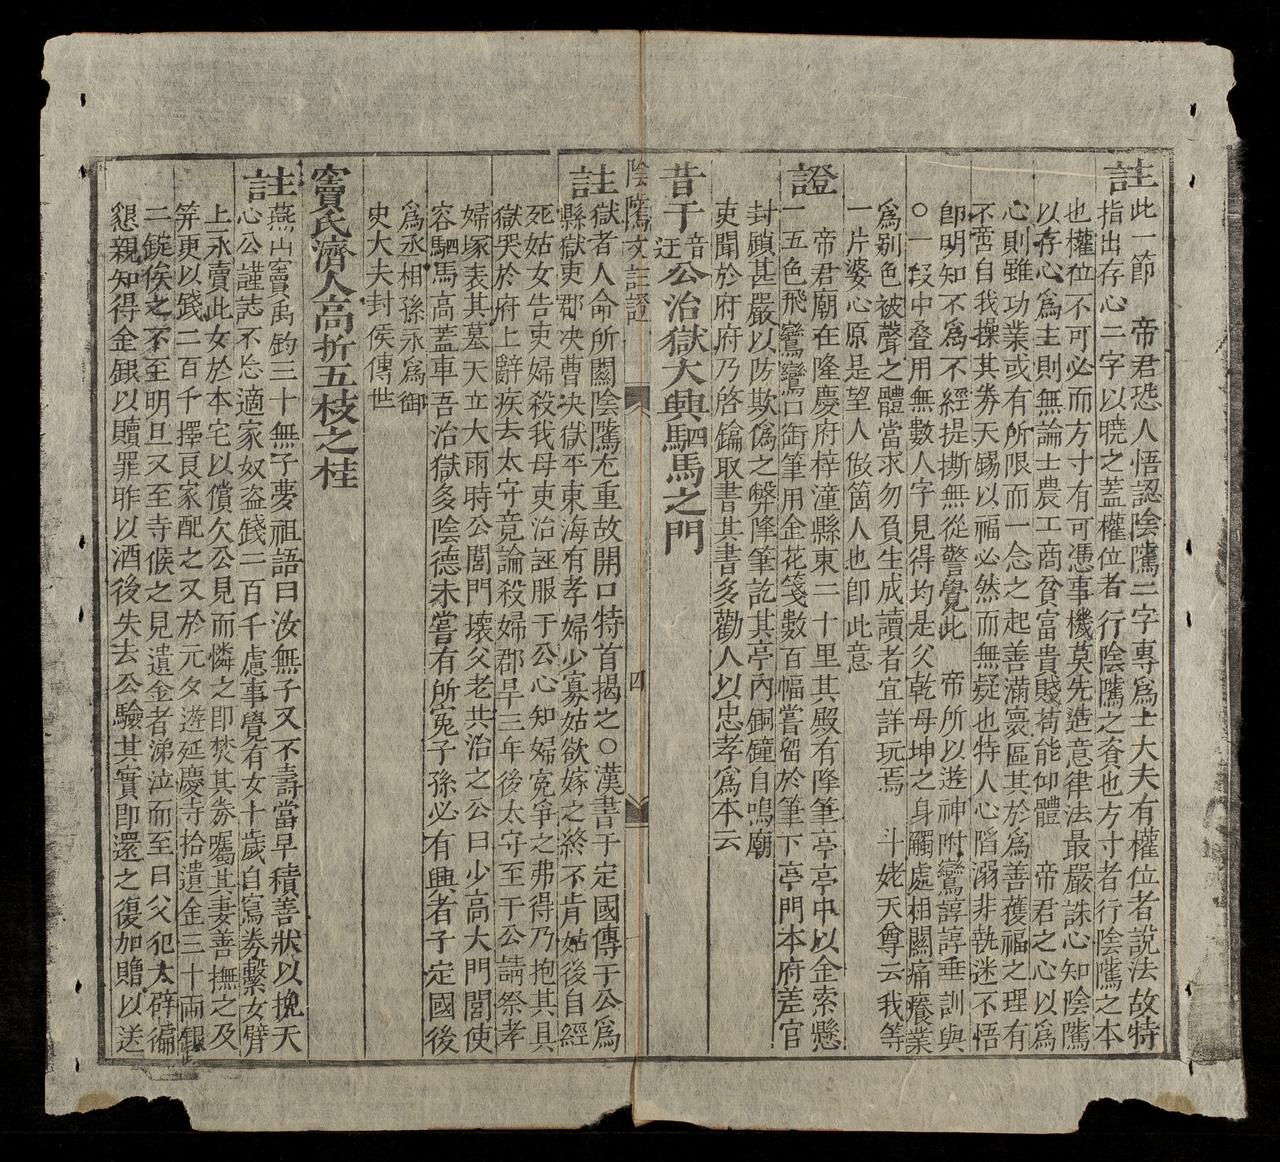 註此一節　帝君恐人悟認陰隲二字專爲士大夫有權位者說法故特
指出存心二字以曉之蓋權位者行陰隲之資也方寸者行陰隲之本
也權位不可必而方寸有可憑事機莫先造意律法最嚴誅心知陰隲
以存心爲主則無論士農工商貧富貴賤苟能仰體　帝君之心以爲
心則雖功業或有所限而一念之起善滿寰區其於爲善獲福之理有
不啻自我操其券天錫以福必然而無疑也特人心陷溺非執迷不悟
卽明知不爲不經提撕無從警覺此　帝所以遊神附鸞諄諄垂訓與
○一叚中疊用無數人字見得均是父乾母坤之身觸處相關痛癢業
爲别色被聲之體當求勿負生成讀者宜詳玩焉　斗姥天尊云我等
一片婆心原是望人做箇人也卽此意
證　帝君廟在隆慶府梓潼縣東二十里其殿有降筆亭亭中以金索懸
一五色飛鸞鸞口銜筆用金花箋數百幅嘗留於筆下亭門本府差官
封鎖甚嚴以防欺僞之弊降筆訖其亭內銅鐘自鳴廟
吏聞於府府乃啓鑰取書其書多勸人以忠孝爲本云
昔于音迂公治獄大興駟馬之門
陰隲文註證　四
註獄者人命所關陰隲尤重故開口特首揭之○漢書于定國傳于公爲
縣獄吏郡决曹决獄平東海有孝婦少寡姑欲嫁之終不肯姑後自經
死姑女告吏婦殺我母吏治誣服于公心知婦寃爭之弗得乃抱其具
獄哭於府上辭疾去太守竟論殺婦郡旱三年後太守至于公請祭孝
婦塚表其墓天立大雨時公閭門壞父老共治之公曰少高大門閭使
容駟馬高蓋車吾治獄多陰德未嘗有所寃子孫必有興者子定國後
爲丞相孫永爲御
史大夫封侯傳世
竇氏濟人高折五枝之桂
註燕山竇禹鈞三十無子夢祖語曰汝無子又不壽當早積善狀以挽天
心公謹誌不怠適家奴盜錢二百千慮事覺有女十歲自寫券繫女臂
上永賣此女於本宅以償欠公見而憐之卽焚其券囑其妻善撫之及
筓更以錢二百千擇良家配之又於元夕遊延慶寺拾遺金三十兩銀
二錠俟之不至明旦又至寺候之見遺金者涕泣而至曰父犯大辟徧
懇親知得金銀以贖罪昨以酒後失去公驗其實卽還之復加贈以送